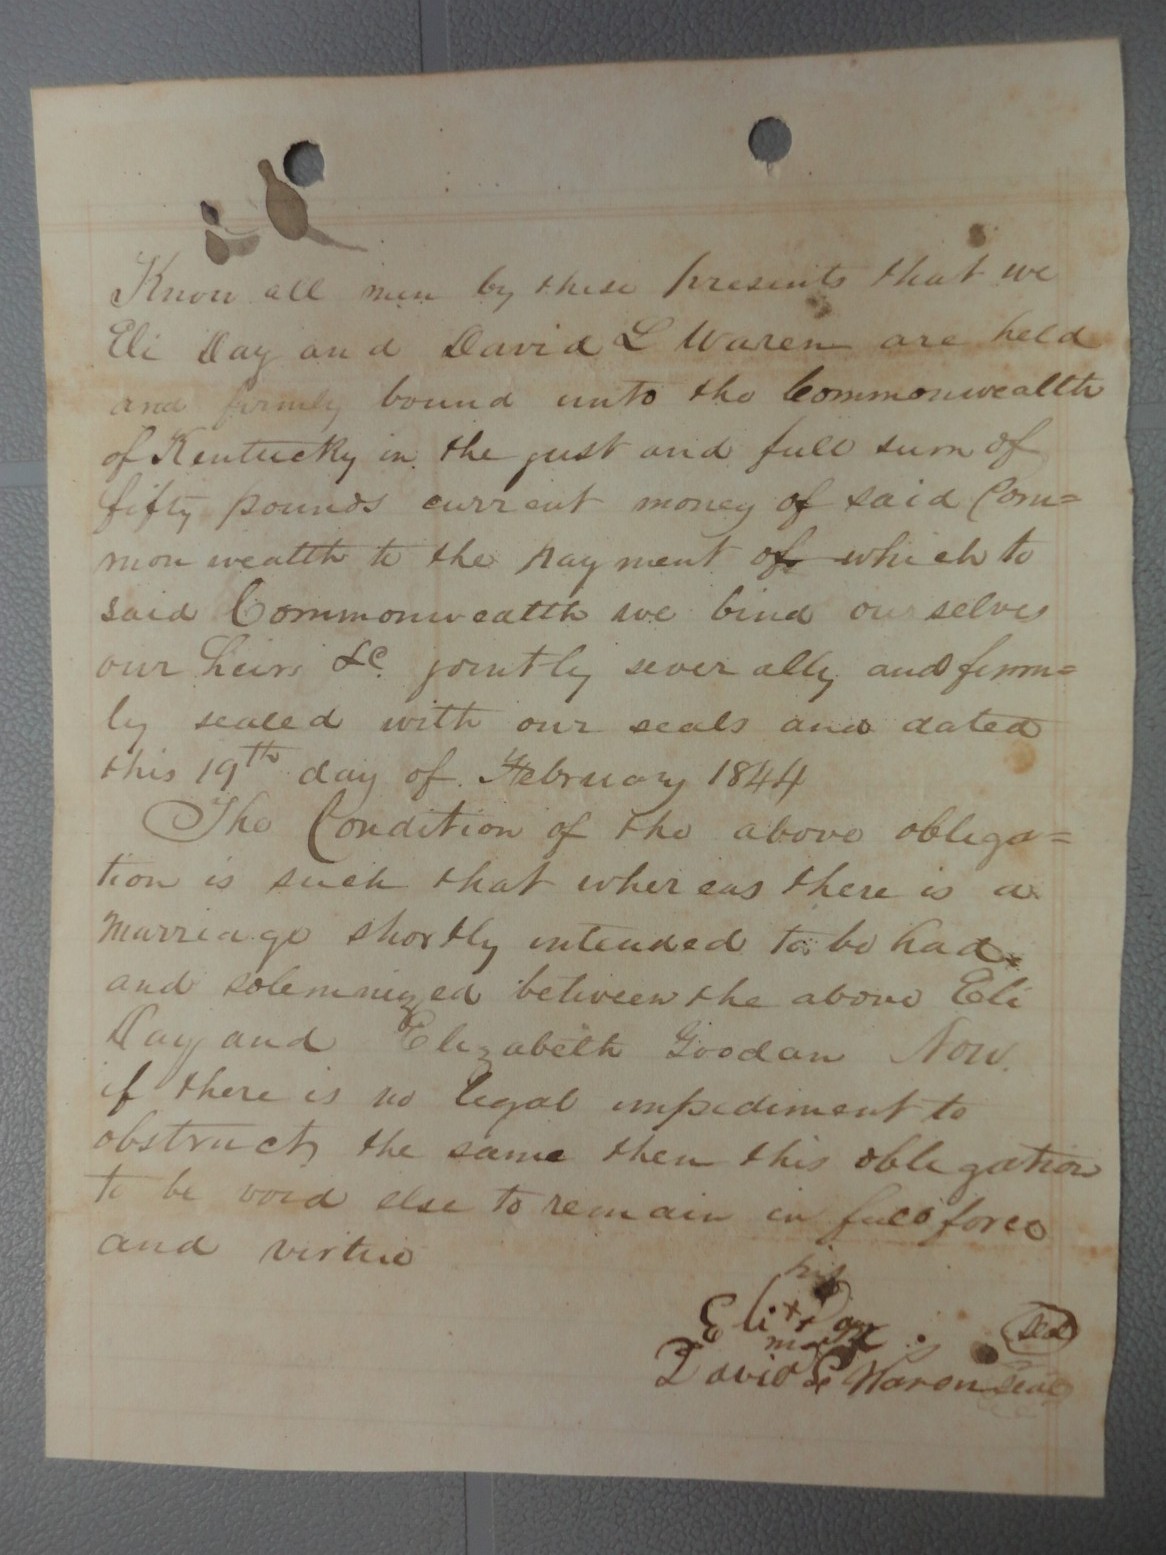 Know all men by these presents that we
Eli Day and David L Waren are held
and firmly bound unto the Commonwealth
of Kentucky in the just and full sum of
fifty pounds current money of said Com=
mon wealth to the payment of which to
said Commonwealth we bind ourselves
our heirs &c. jointly severally and firm=
ly sealed with our seals and dated
this 19th day of February 1844
The Condition of the above obliga=
tion is such that whereas there is a
marriage shortly intended to be had
and solemnized between the above Eli
Day and Elizabeth Goodan Now
if there is no legal impediment to
obstruct the same then this obligation
to be void else to remain in full force
and virtue
his
Eli x Day seal
mark
David L Waron Seal